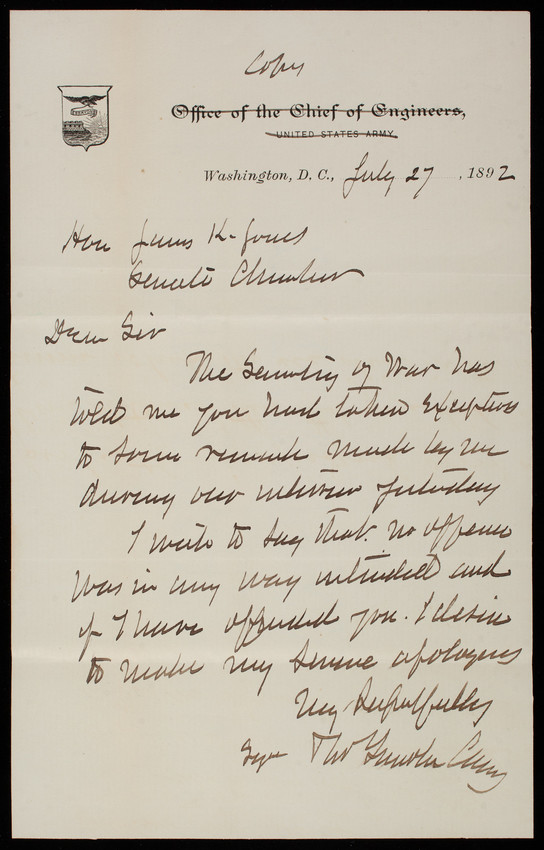 Copy
Office of the Chief of Engineers,
UNITED STATES ARMY.
Washington, D. C., July 27, 1892
Hon James K. Jones
Senate Chamber
Dear Sir
The Secretary of War has
told me you had taken exceptions
to some remark made by me
during our interview yesterday
I write to say that no offense
was in any way intended and
if I have offended you. I desire
to make my sincere apologies
Very Respectfully
Sgd Thos Lincoln Casey